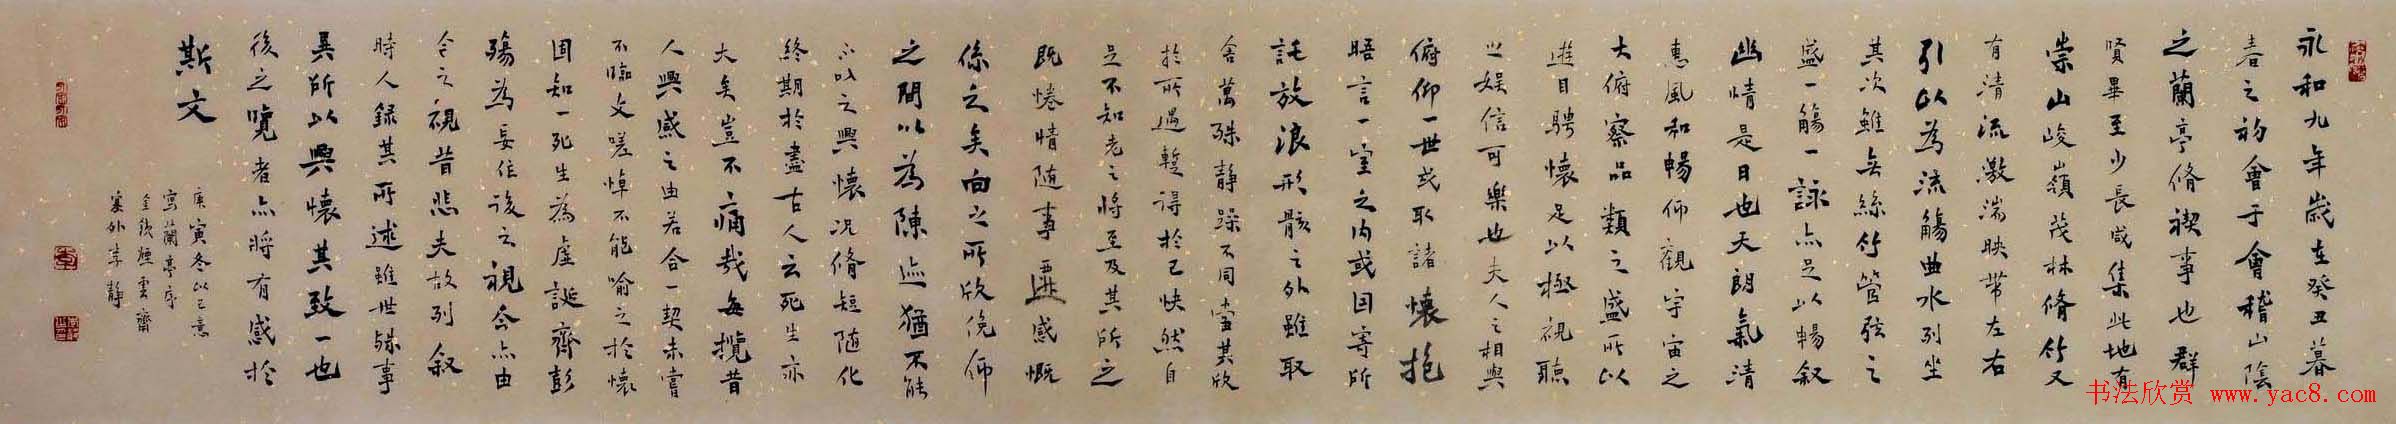 永和九年歲在癸丑暮
春之初會于會稽山陰
之蘭亭脩禊事也群
賢畢至少長咸集此地有
崇山峻嶺茂林脩竹又
有清流激湍映帶左右
引以為流觴曲水列坐
其次雖無絲竹管弦之
盛一觴一詠亦足以暢叙
幽情是日也天朗氣清
惠風和暢仰觀宇宙之
大俯察品類之盛所以
遊目騁懷足以極視聽
之娱信可樂也夫人之相與
俯仰一世或取諸懷抱
晤言一室之内或因寄所
託放浪形骸之外雖取
舍萬殊静躁不同當其欣
於所遇暫得於己快然自
足不知老之將至及其所之
既惓情随事遷感慨
係之矣向之所欣俛仰
之間以為陳迹猶不能
不以之興懷况脩短随化
終期於盡古人云死生亦
大矣豈不痛哉每攬昔
人興感之由若合一契未嘗
不臨文嗟悼不能喻之於懷
固知一死生為虚誕齊彭
殤為妄作後之視今亦由
今之視昔悲夫故列叙
時人録其所述雖世殊事
異所以興懷其致一也
後之覽者亦將有感於
斯文
庚寅冬以己意
寫蘭亭序
於煙雲齋
塞外李静
书法欣赏 www.yac8.com